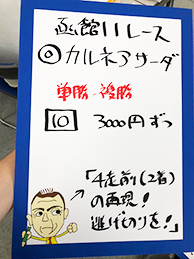 函館11レース
◎カルネアサーダ
単勝・複勝
10 3000円ずつ
「4走前(2着)
の再現!
逃げきりを!」